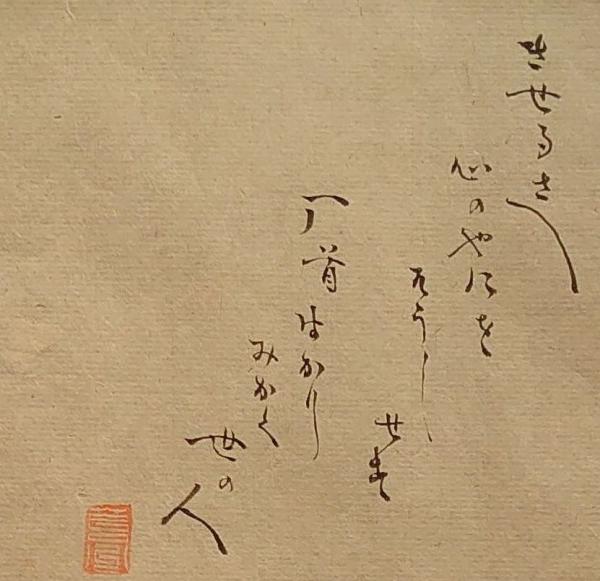 きせるさへ
心のやにを
そうしせす
厂首はかり
みかく
世の人